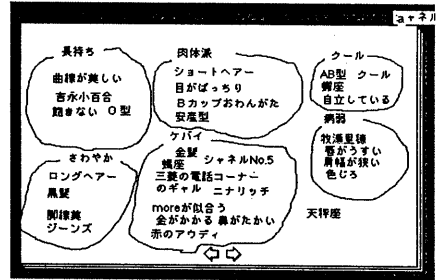 aャネル
長持ち
曲線が美しい
吉永小百合
飽きない O型
肉体派
ショートヘアー
目がぱっちり
Bカップおわんがた
安産型
クール
AB型 クール
蠍座
自立している
病弱
牧瀬里穂
唇がうすい
肩幅が狭い
色じろ
さわやか
ロングヘアー
黒髪
脚線美
ジーンズ
ケバイ
金髪
蠍座 シャネルNo.5
三菱の電話コーナー
のギャル ニナリッチ
moreが似合う
金がかかる 鼻がたかい
赤のアウディ
天秤座